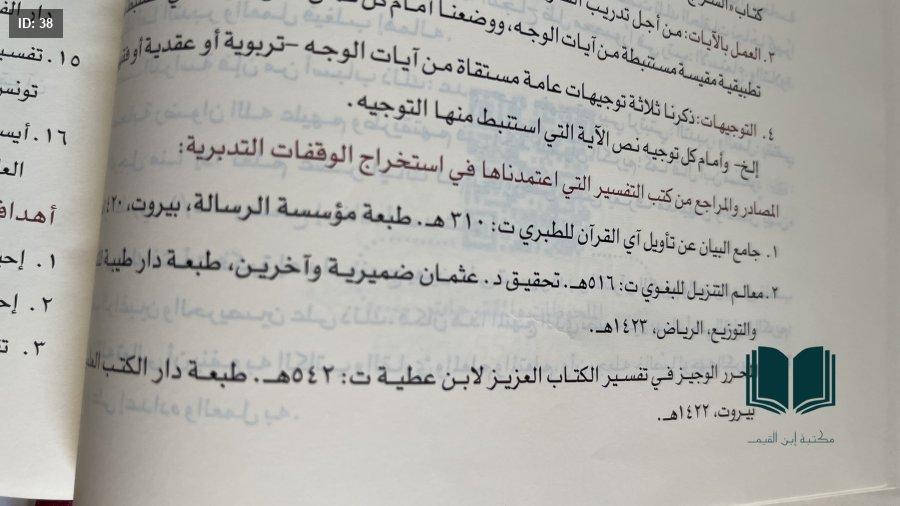 ID: 38
كتاب
٣. العمل بالآيات: من أجل تدريب
تطبيقية مقيسة مستنبطة من آيات الوجه، ووضعنا أمام كل
٤. التوجيهات: ذكرنا ثلاثة توجيهات عامة مستقاة من آيات الوجه -تربوية أو عقدية أو
إلخ- وأمام كل توجيه نص الآية التي استنبط منها التوجيه.
المصادر والمراجع من كتب التفسير التي اعتمدناها في استخراج الوقفات التدبرية:
١. جامع البيان عن تأويل آي القرآن للطبري ت: ٣١٠ هـ. طبعة مؤسسة الرسالة، بيروت،
٢. معالم التنزيل للبغوي ت: ٥١٦هـ. تحقيق د. عثمان ضميرية وآخرين، طبعة دار طيبة
والتوزيع، الرياض، ١٤٢٣هـ.
المحرر الوجيز في تفسير الكتاب العزيز لابن عطية ت: ٥٤٢هـ. طبعة دار الكتب
بيروت، ١٤٢٢هـ.
١٥. تفسير
تونس
١٦. أيس
أهداف
١.
٢.
٣.
مكتبة ابن القيم